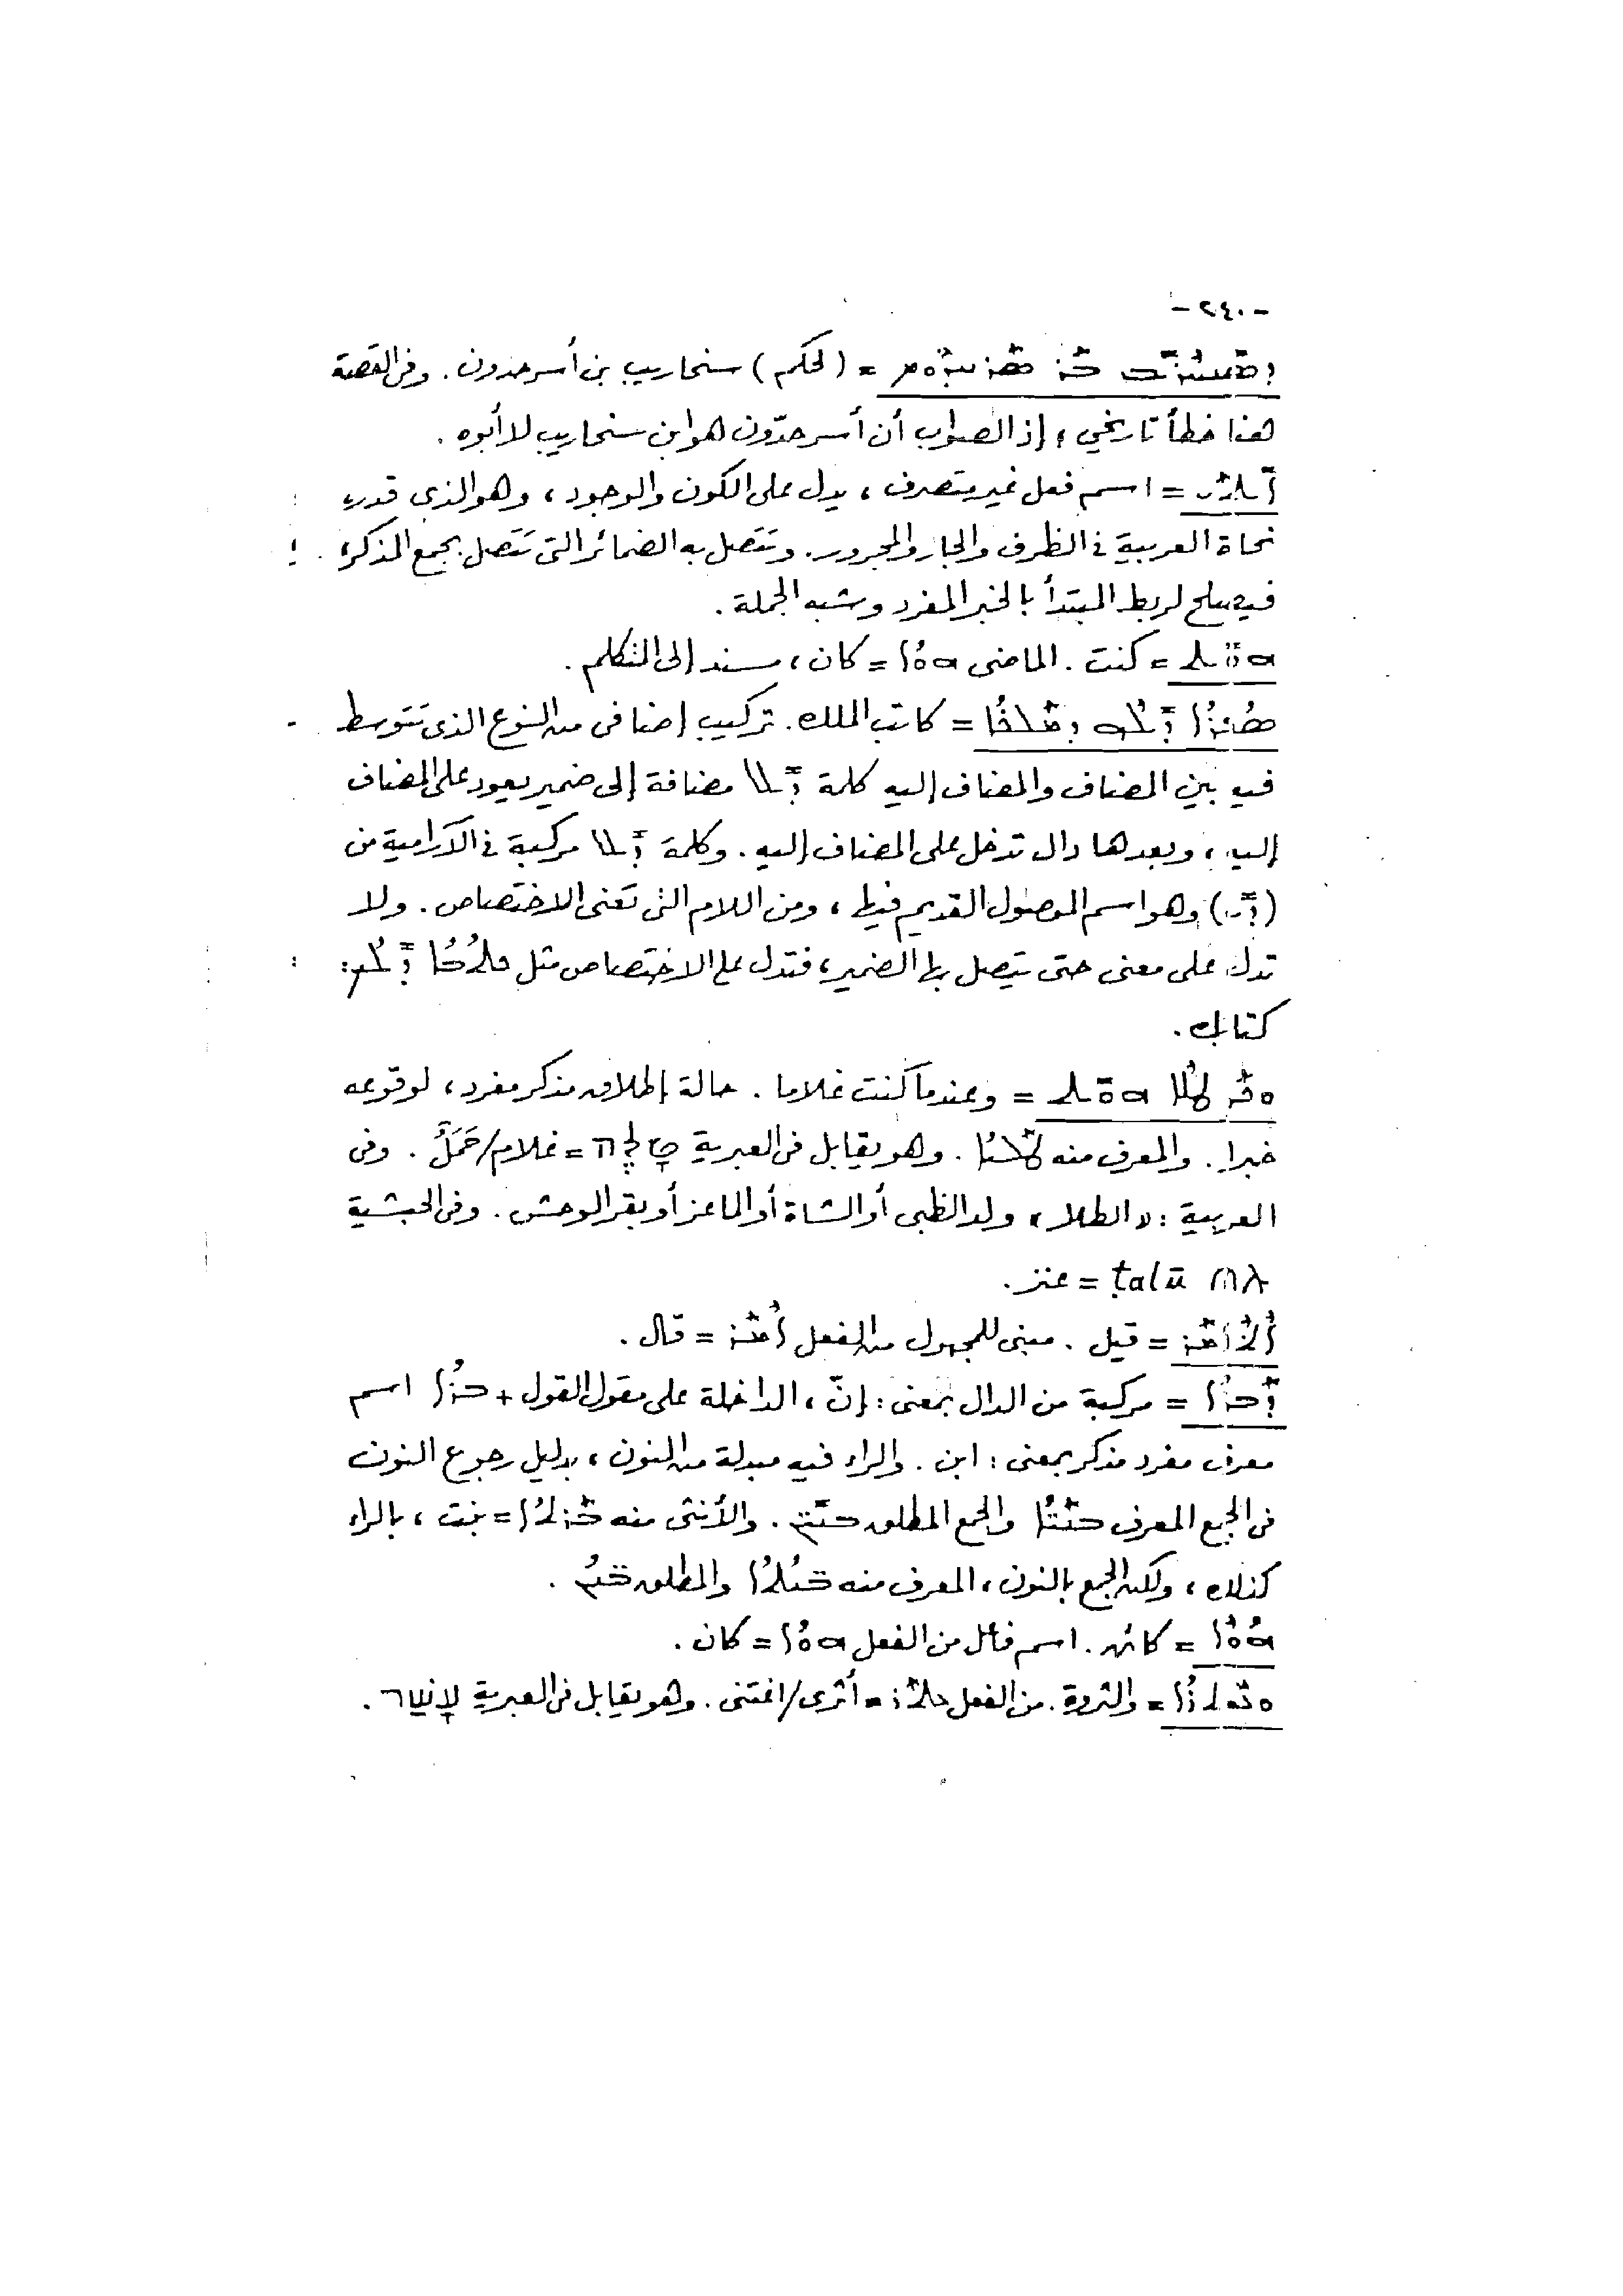 -٢٤٠-
ܕܣܢܚܪܝܒ ܒܪ ܣܪܚܕܘܡ = (لحكم) سنحاريب بن أسرحدون. وفى القصة
هنا خطأ تاريخي، إذ الصواب أن أسرحدّون هو ابن سنحاريب لا أبوه.
ܐܝܬܝ = اسم فعل غير متصرف، يدل على الكون والوجود، وهو الذى قدره
نحاة العربية فى الظرف والجار والمجرور. وتتصل به الضمائر التى تتصل بجمع المذكر،
فيصلح لربط المبتدأ بالخبر المفرد وشبه الجملة.
ܗܘܝܬ = كنت. الماضى ܗܘܐ = كان، مسند إلى المتكلم.
ܣܦܪܐ ܕܝܠܗ ܕܡܠܟܐ = كاتب الملك. تركيب إضافى من النوع الذى تتوسط
فيه بين المضاف والمضاف إليه كلمة ܕܝܠ مضافة إلى ضمير يعود على المضاف
إليه، وبعدها دال تدخل على المضاف إليه. وكلمة ܕܝܠ مركبة فى الآرامية من
(ܕܝ) وهو اسم الموصول القديم فيها، ومن اللام التى تعنى الاختصاص. ولا
تدل على معنى حتى يتصل بها الضمير، فتدل على الاختصاص مثل ܟܬܒܐ ܕܝܠܟ:
كتابك.
ܘܟܕ ܛܠܐ ܗܘܝܬ = وعندما كنت غلاما. حالة إطلاق مذكر مفرد، لوقوعه
خبرا. والمعرف منه ܛܠܝܐ. وهو يقابل فى العبرية טָלֶה = غلام/حَمَلٌ. وفى
العربية: «الطلا» ولد الظبى أو الشاة أو الماعز أو بقر الوحش. وفى الحبشية
ṭalū = عنز.
ܐܬܐܡܪ = قيل. مبنى للمجهول من الفعل ܐܡܪ = قال.
ܕܒܪܐ = مركبة من الدال بمعنى: إنّ، الداخلة على مقول القول + ܒܪܐ اسم
معرف مفرد مذكر بمعنى: ابن. والراء فيه مبدلة من النون، بدليل رجوع النون
فى الجمع المعرف ܒܢܝܐ والجمع المطلق ܒܢܝܢ. والأنثى منه ܒܪܬܐ = بنت، بالراء
كذلك، ولكن الجمع بالنون، المعرف منه ܒܢܬܐ والمطلق ܒܢܢ.
ܗܘܐ = كائن. اسم فاعل من الفعل ܗܘܐ = كان.
= والثروة. من الفعل ܥܬܪ = أثرى/اغتنى. وهو يقابل فى العبرية